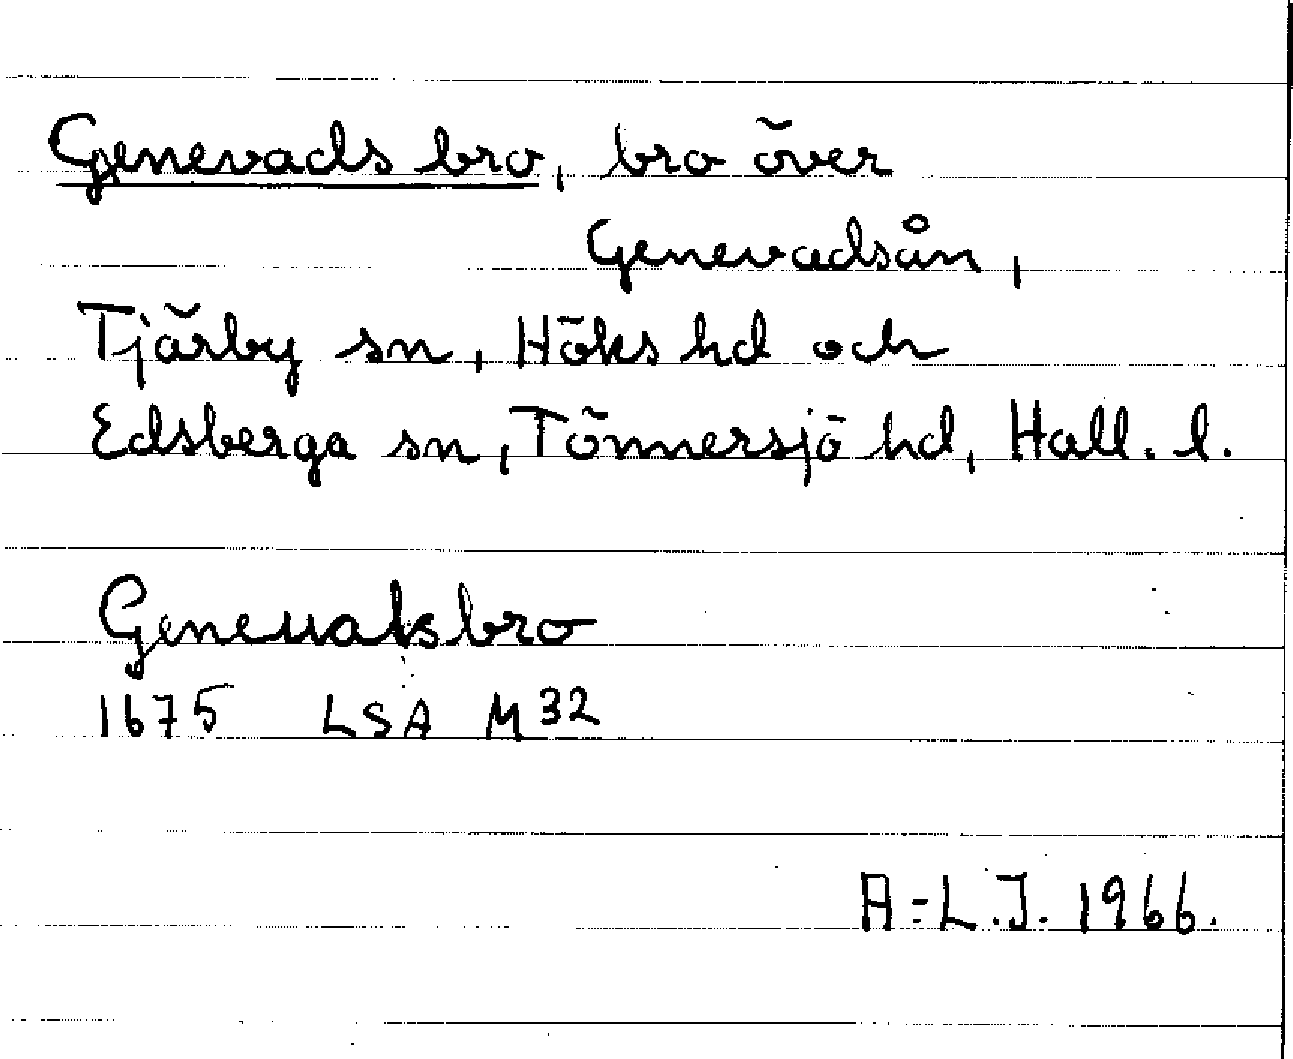 Genevads bro, bro över
Genevadsån,
Tjärby sn, Höks hd och
Edsberga sn, Tönnersjö hd, Hall. l.
Geneuatsbro
1675 LSA M32
A-L.J. 1966.